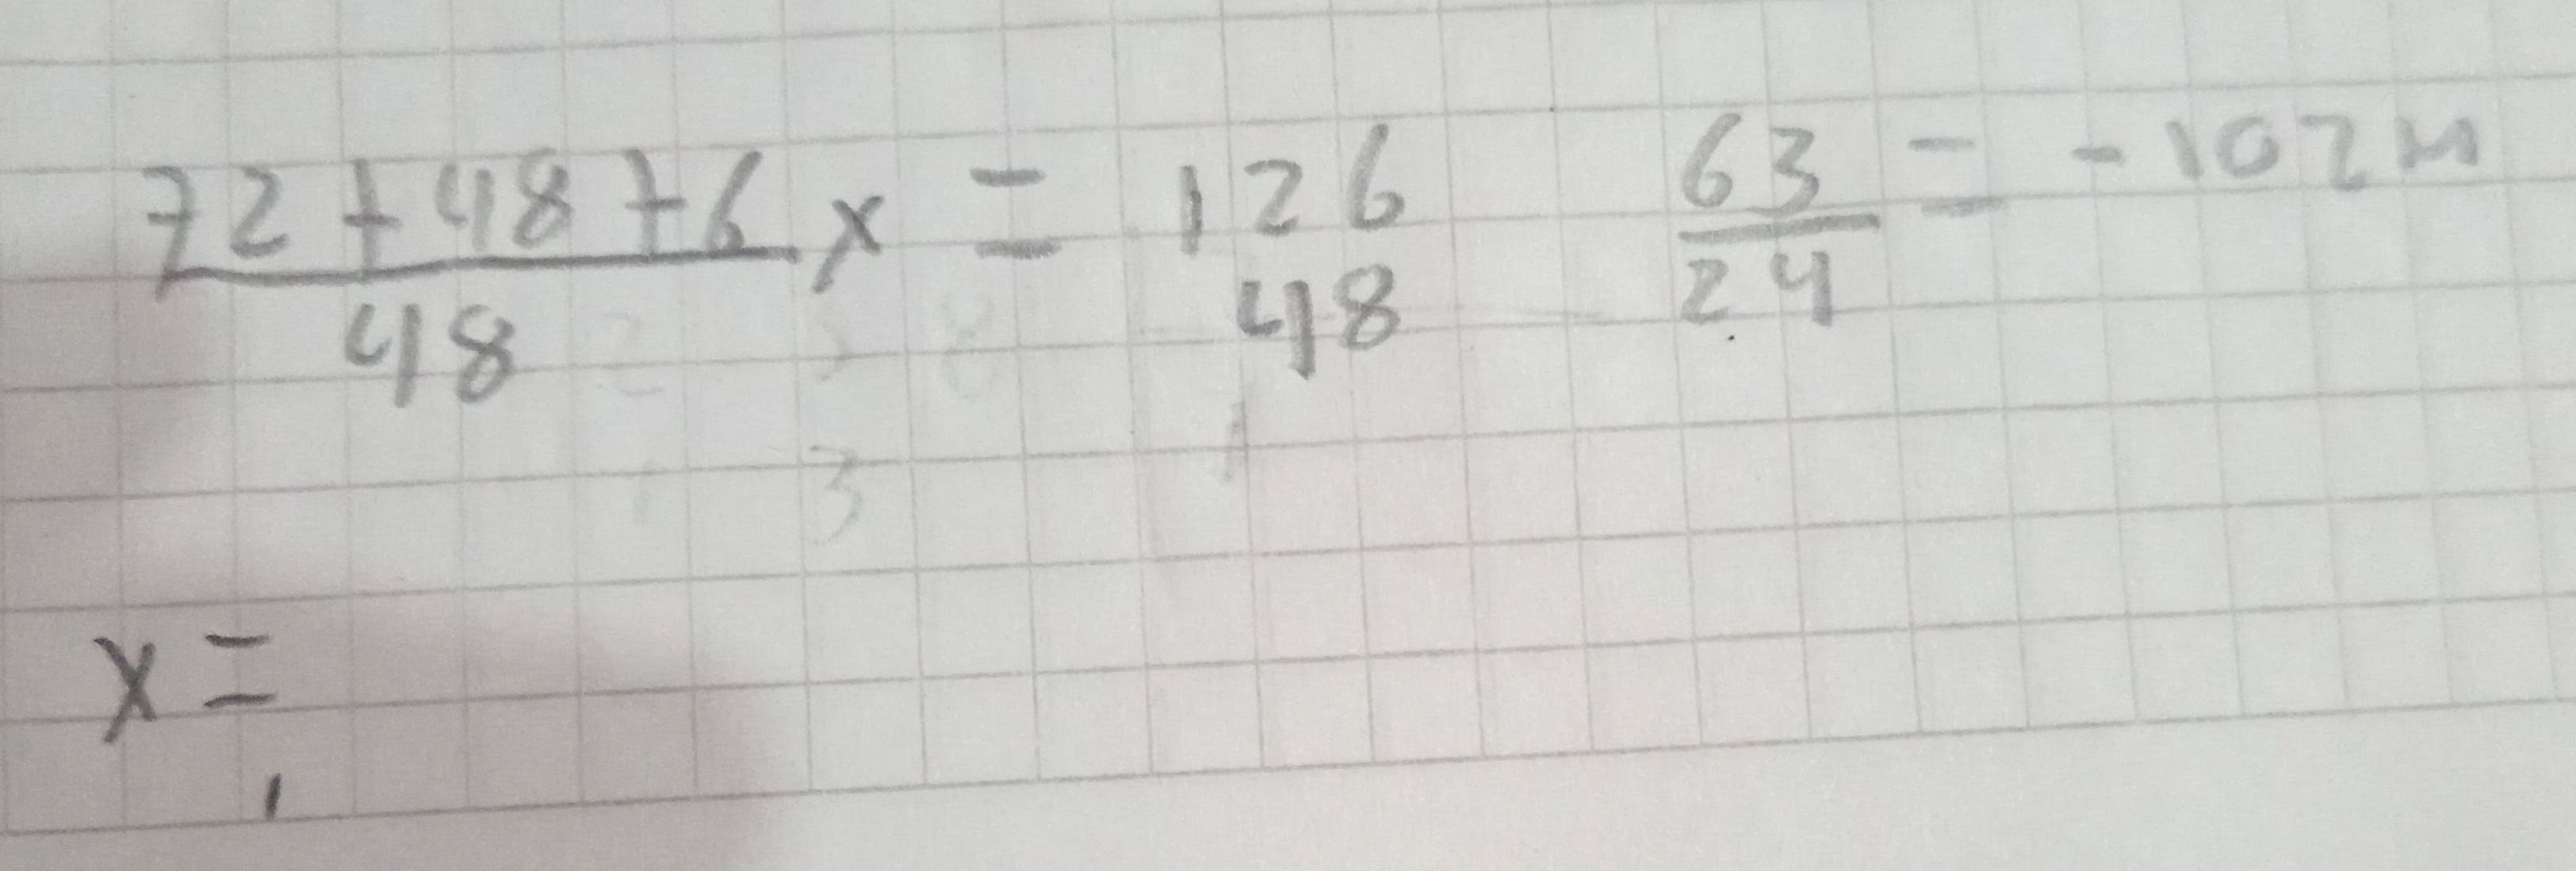 72+48+6/48 x = 126/48 63/24 = -102M
x =